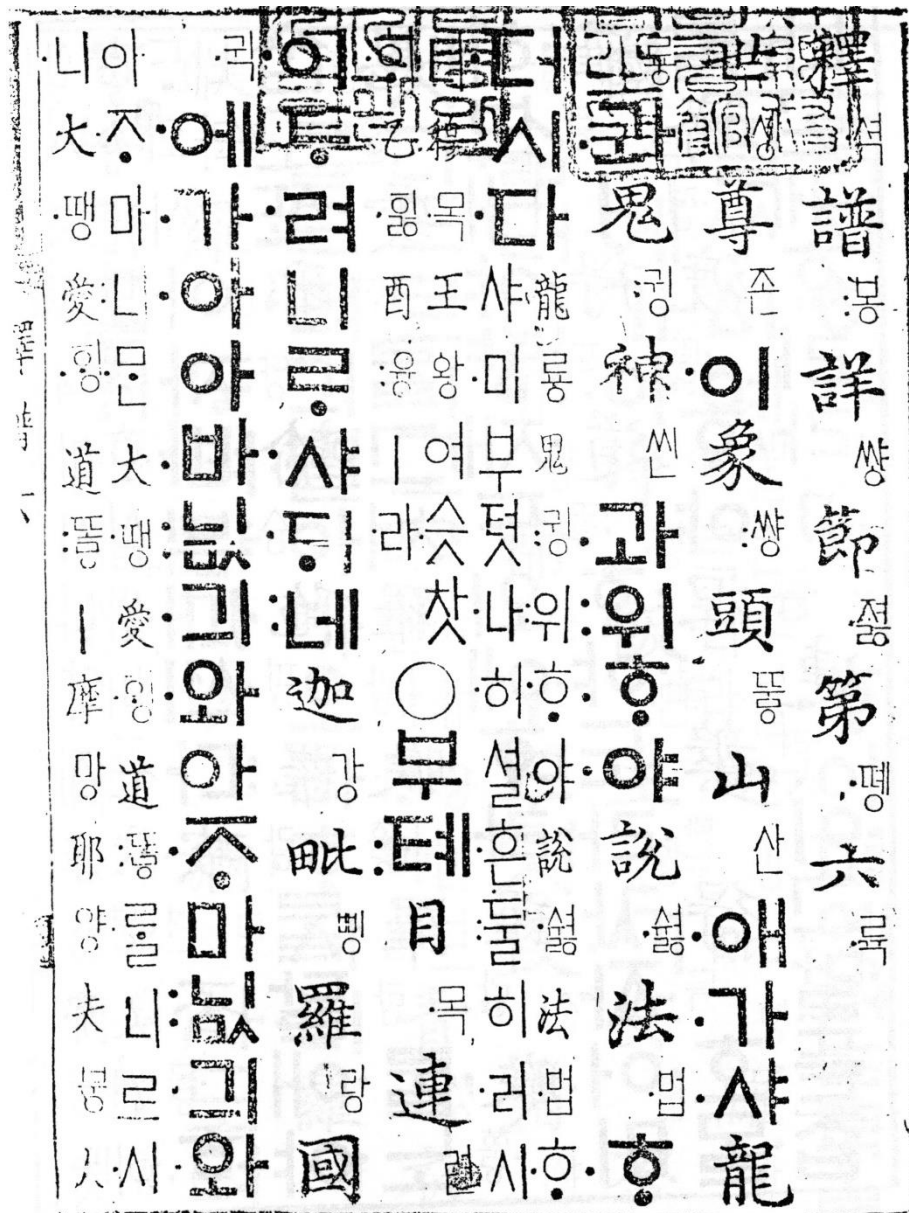 釋셕譜봉詳썅節져ᇙ第똉六륙
世솅尊존이象썅頭뚜ᇢ山산애가샤龍
룡鬼귕神씬과위ᄒᆞ야說ᄉᆑᇙ法법ᄒᆞ
더시다
龍룡鬼귕위ᄒᆞ야說ᄉᆑᇙ法법ᄒᆞ
샤미부텻나히셜흔둘히러시
니穆목王왕여슷찻
ᄒᆡ乙ᅙᅳᇙ酉유ᇢㅣ라
○부톄目목連련
이ᄃᆞ려니ᄅᆞ샤ᄃᆡ네迦강毗삥羅랑國
귁에가아아바니ᇝ긔와아ᄌᆞ마니ᇝ긔와
아ᄌᆞ마니ᄆᆞᆫ大땡愛ᅙᆡᆼ道또ᇢ를니르시
니大땡愛ᅙᆡᆼ道또ᇢㅣ摩망耶양夫붕人
釋譜六